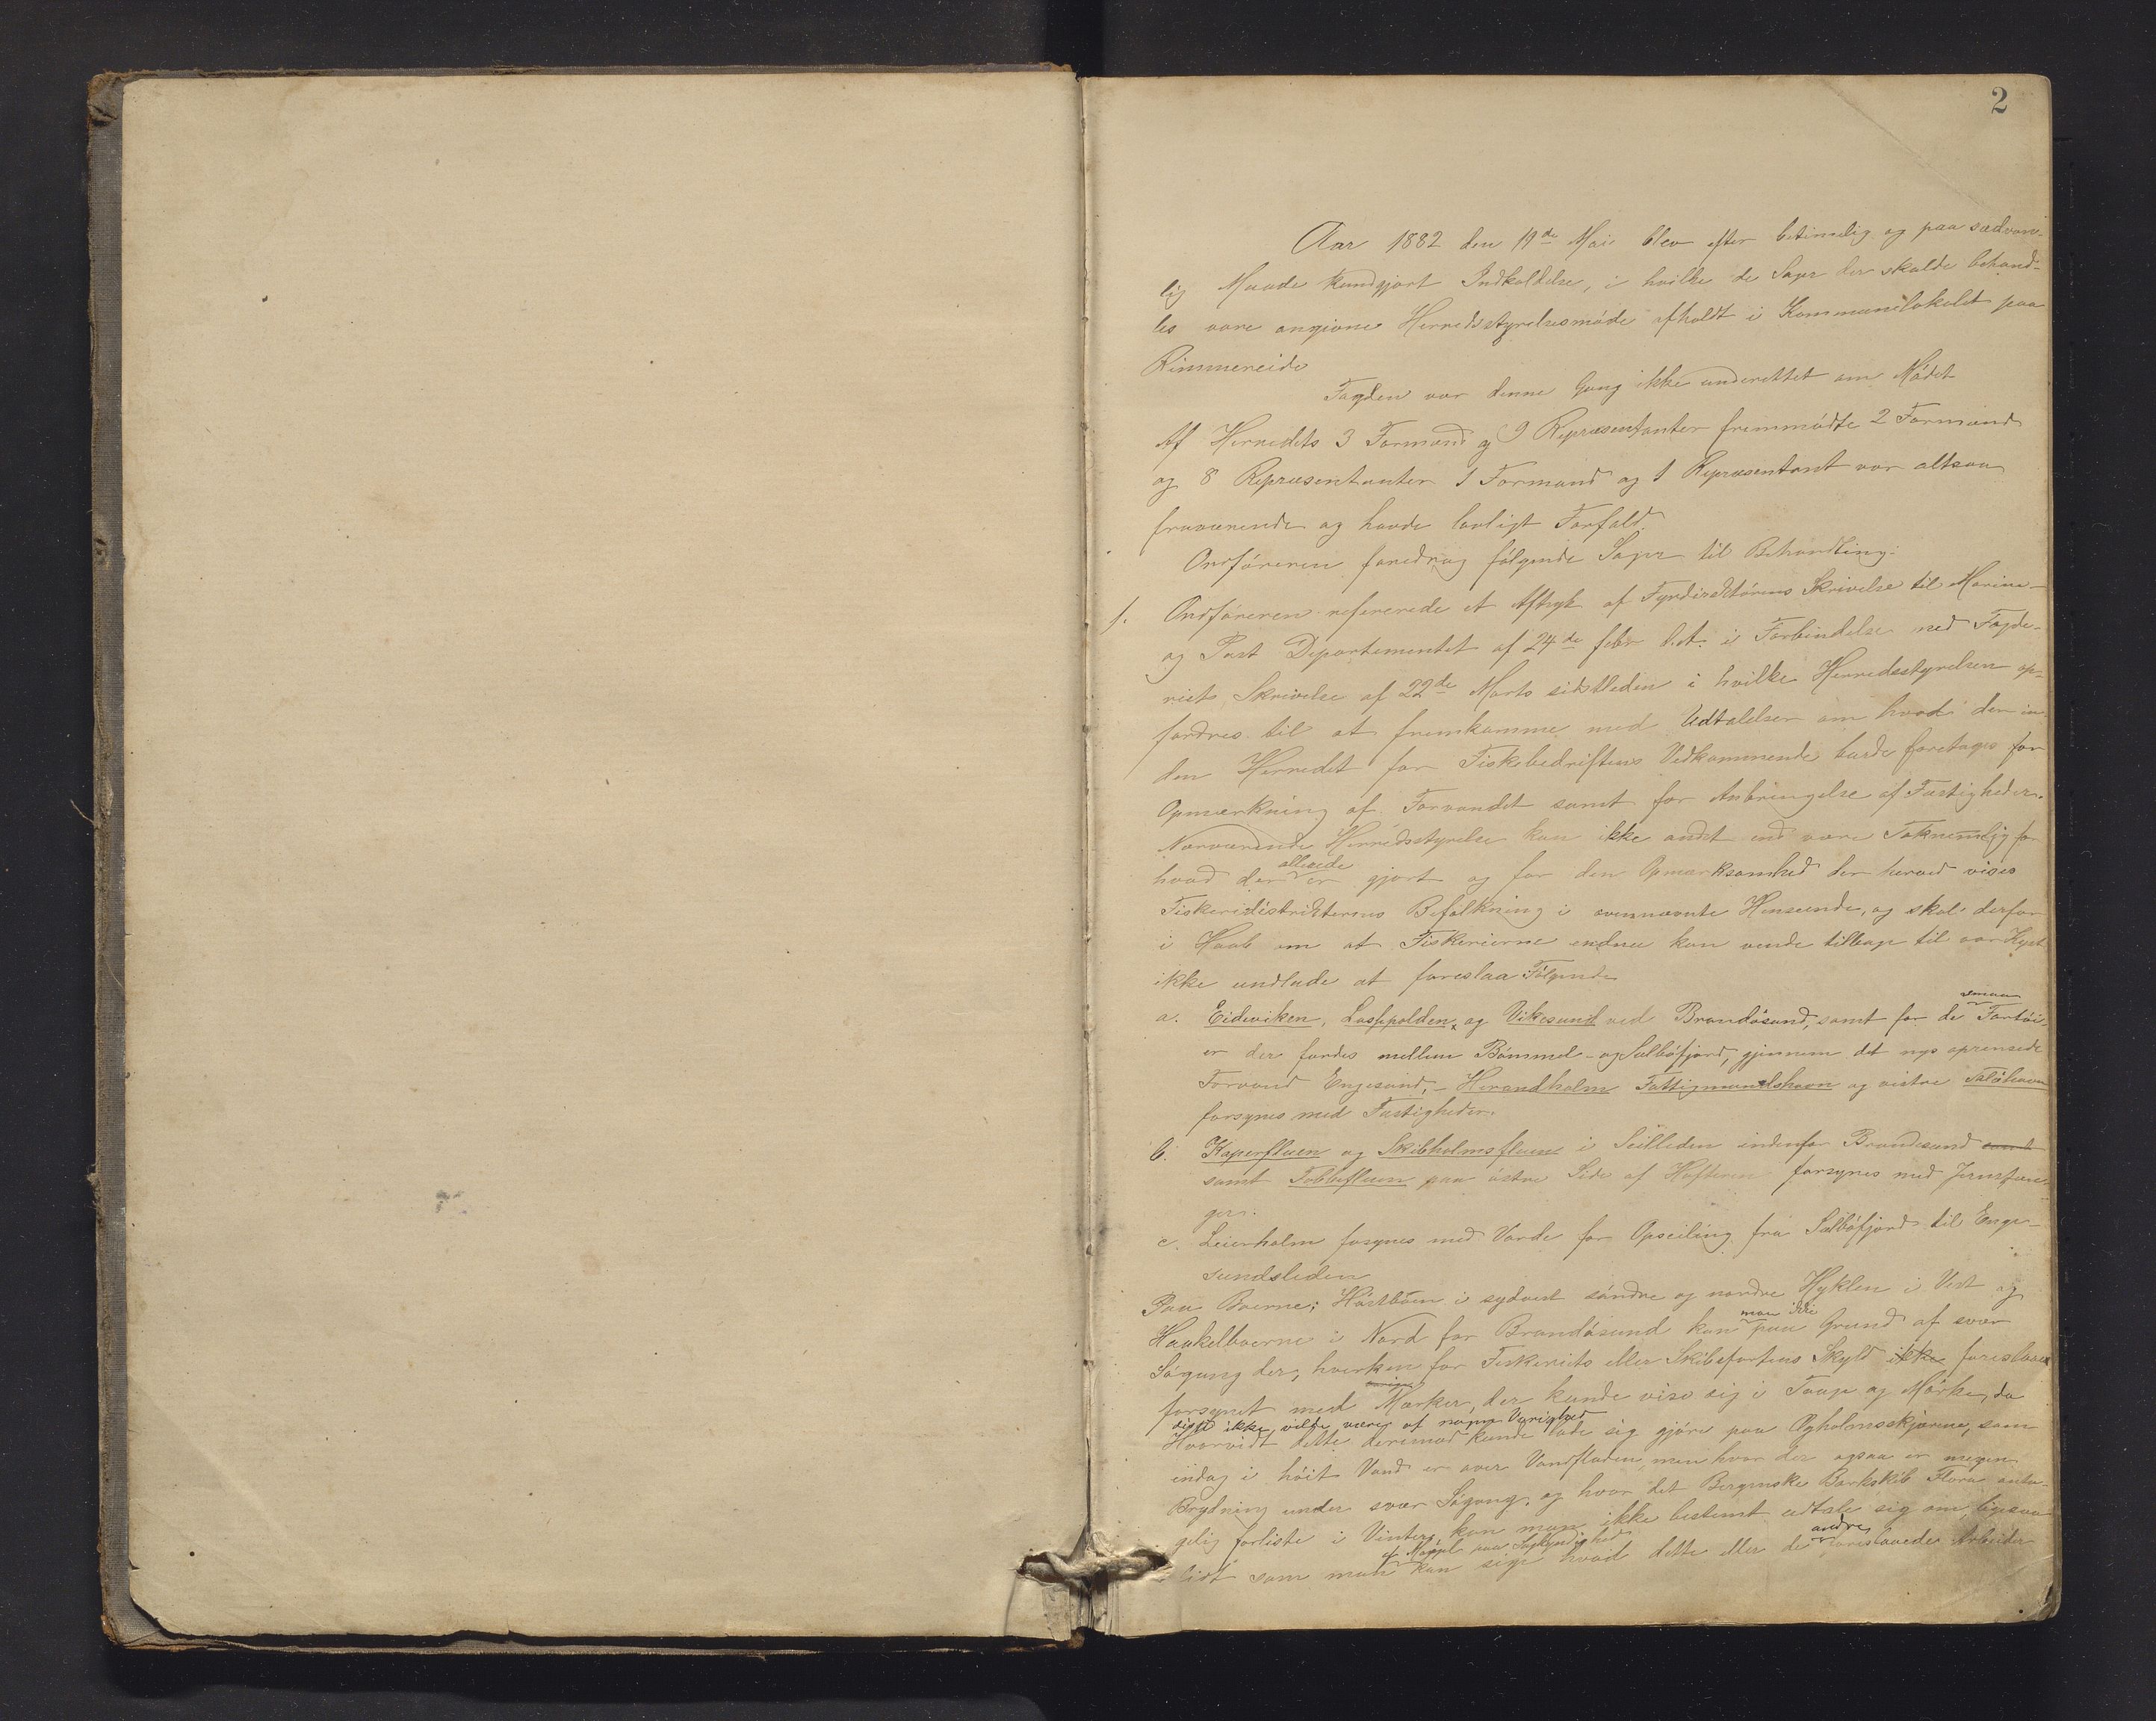 2
Aar 1882 den 19de Mai blev efter betimelig og paa sædvan-
lig Maade kundgjort Indkaldelse, i hvilke de Sager der skulde behand-
les vare angivne Herredsstyrelsesmöde afholdt i Kommunelokalet paa
Rimmereide
Fogden var denne Gang ikke underettet om Mödet
Af Herredets 3 Formænd og 9 Repræsentanter fremmödte 2 Formænd
og 8 Repræsentanter 1 Formand og 1 Repræsentant var altsaa
fraværende og havde lovligt Forfald.
Ordföreren foredrog fölgende Sager til Behandling:
1. Ordföreren refererede et Aftryk af Fyrdirektörens Skrivelse til Marine-
og Post Departementet af 24de febr d.A. i Forbindelse med Fogde-
riets Skrivelse af 22de Marts sidstleden i hvilke Herredsstyrelsen op-
fordres til at fremkomme med Udtalelser om hvad der in-
den Herredet for Fiskebedriftens Vedkommende burde foretages for
Opmærkning af Farvandet samt for Anbringelse af Fastigheder.
Nærværende Herredsstyrelse kan ikke andet end være Taknemlig for
hvad der allerede er gjort og for den Opmærksomhed der herved vises
Fiskeridistrikternes Befolkning i ovennævnte Henseende, og skal derfor
i Haab om at Fiskerierne endnu kan vende tilbage til vor Kyst
ikke undlade at foreslaa Fölgende
a. Eideviken, Lappolden, og Vikesund ved Brandösund, samt for de smaa Fartöi-
er der færdes mellem Bömmel- og Selböfjord, gjennem det nys oprensede
Farvand Engesund, - Herandholm Fattigmandshavn og vestre
forsynes med Fastigheder.
b. Kaperfluen og Skibholmsfluen i Seilleden indenfor Brandesund samt
samt Tobbefluen paa östre Side af Hufteren forsynes med Jernstæn-
ger.
c. Leierholm forsynes med Varde for Opseiling fra Selböfjord til Enge-
sundsleden
Paa Boerne; Höstböen i sydvest söndre og nordre Hyklen i Vest og
Haakelboerne i Nord for Brandösund kan man ikke paa Grund af svær
Sögang der, hverken for Fiskeriets eller Skibsfartens Skyld ikke foreslaa
forsynet med Mærker, der kunde vise sig i Taage og Mörke, da
disse ikke vilde være af nogen Varighed
Hvorvidt dette derimod kunde lade sig gjöre paa Ögholmsskjærene, som
endog i höit Vand er over Vandfladen, men hvor der ogsaa er megen
Brydning under svær Sögang, og hvor det Bergenske Barkskib Flora anta-
gelig forliste i Vinter, kan man ikke bestemt udtale sig om, ligesaa-
lidt som man af Mangel paa Sagkyndighed kan sige hvad dette eller de andre foreslaaede Arbeider